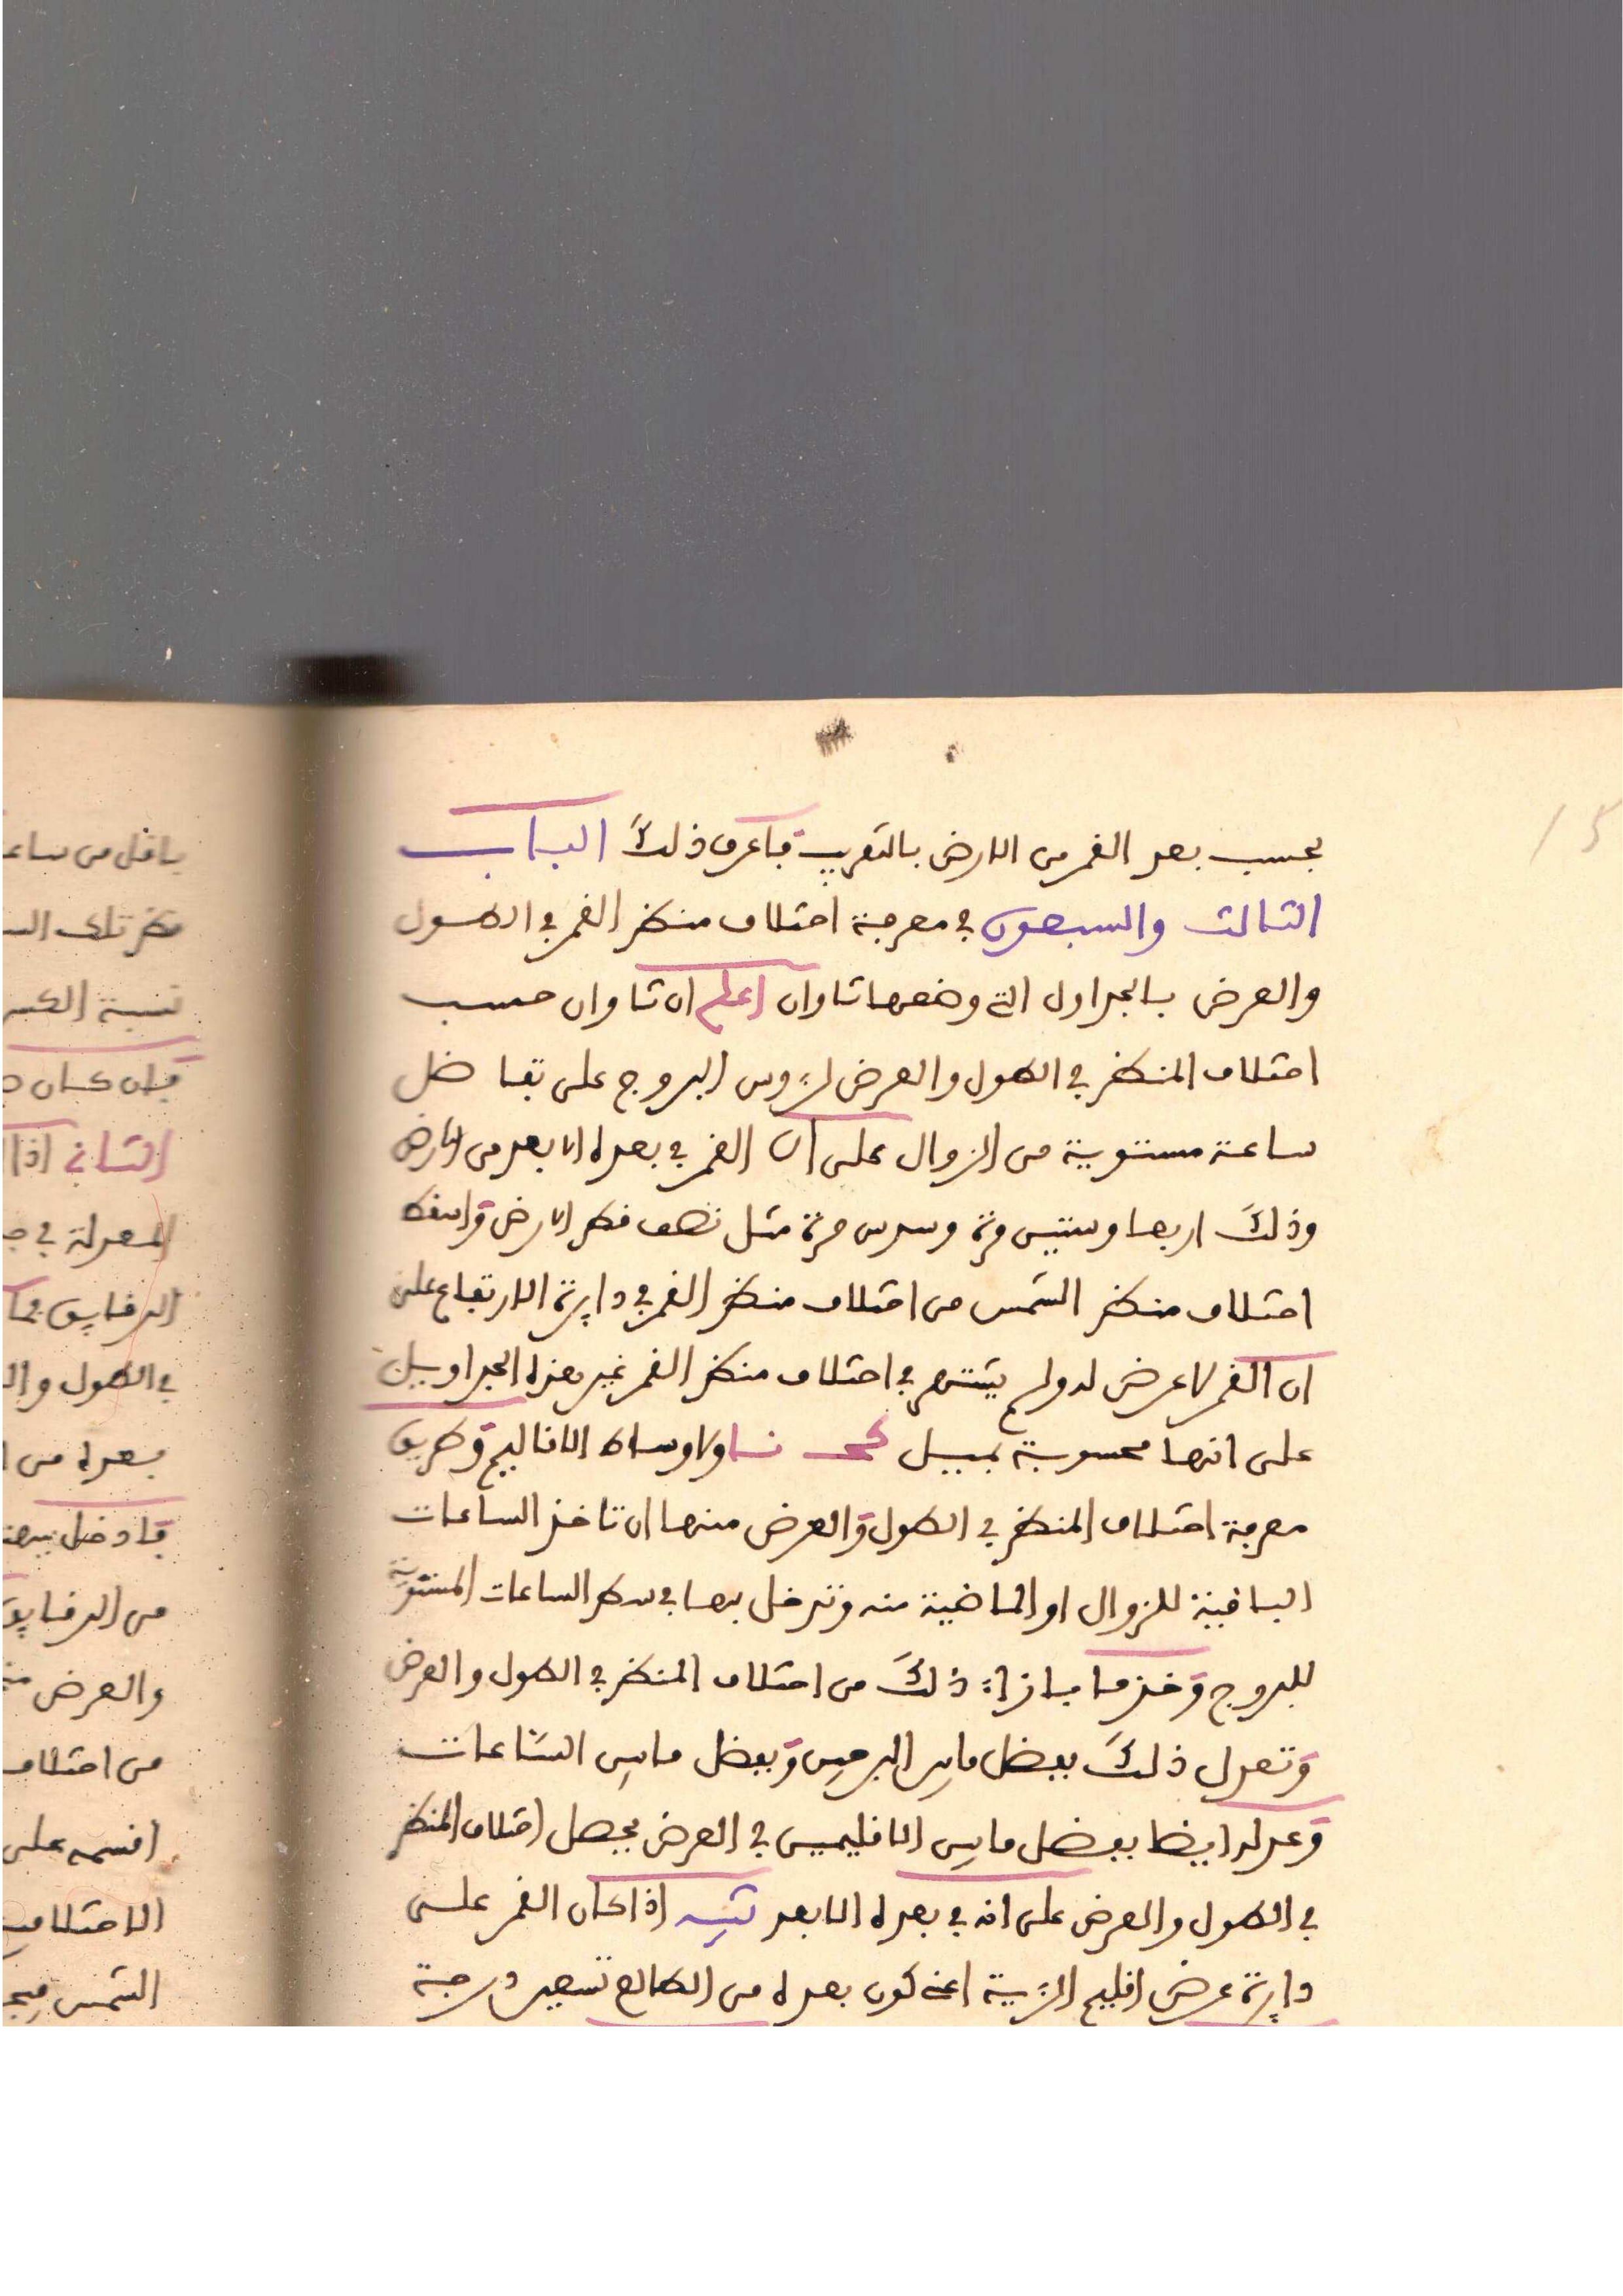 بحسب بعد القمر من الارض بالتقريب فاعرف ذلك الباب
الثالث والسبعون في معرفة اختلاف منظر القمر في الطول
والعرض بالجداول التي وضعها ثاوان اعلم ان ثاوان حسب
اختلاف المنظر في الطول والعرض لرءوس البروج على تفاضل
ساعة مستوية من الزوال على ان القمر في بعده الابعد من الارض
وذلك اربعا وستين مرة وسدس مرة مثل نصف قطر الارض واسقط
اختلاف منظر الشمس من اختلاف منظر القمر في دايرة الارتفاع على
ان القمر لا عرض له ولم يشتهر في اختلاف منظر القمر غير هذه الجداويل
على انها محسوبة بميل كحـ نا ولاوساط الاقاليم وطريق
معرفة اختلاف المنظر في الطول والعرض منها ان تاخذ الساعات
الباقية للزوال او الماضية منه وتدخل بها في سطر الساعات المستوية
للبروج وخذ ما بازاء ذلك من اختلاف المنظر في الطول والعرض
وتعدل ذلك بفضل ما بين البرجين وبفضل ما بين الساعات
وعدله ايضا بفضل ما بين الاقليمين في العرض يحصل اختلاف المنظر
في الطول والعرض على انه في بعده الابعد تنبيه اذا كان القمر على
دايرة عرض اقليم الرءية اعني كون بعده من الطالع تسعين درجة
ياقل من
نسبة
فان كان
الثاني اذا
المعدلة في
الدقايق
في الطول
بعده من
فادخل بهذ
من الدقايق
والعرض
من اختلاف
اقسمه على
الاختلاف
الشمس